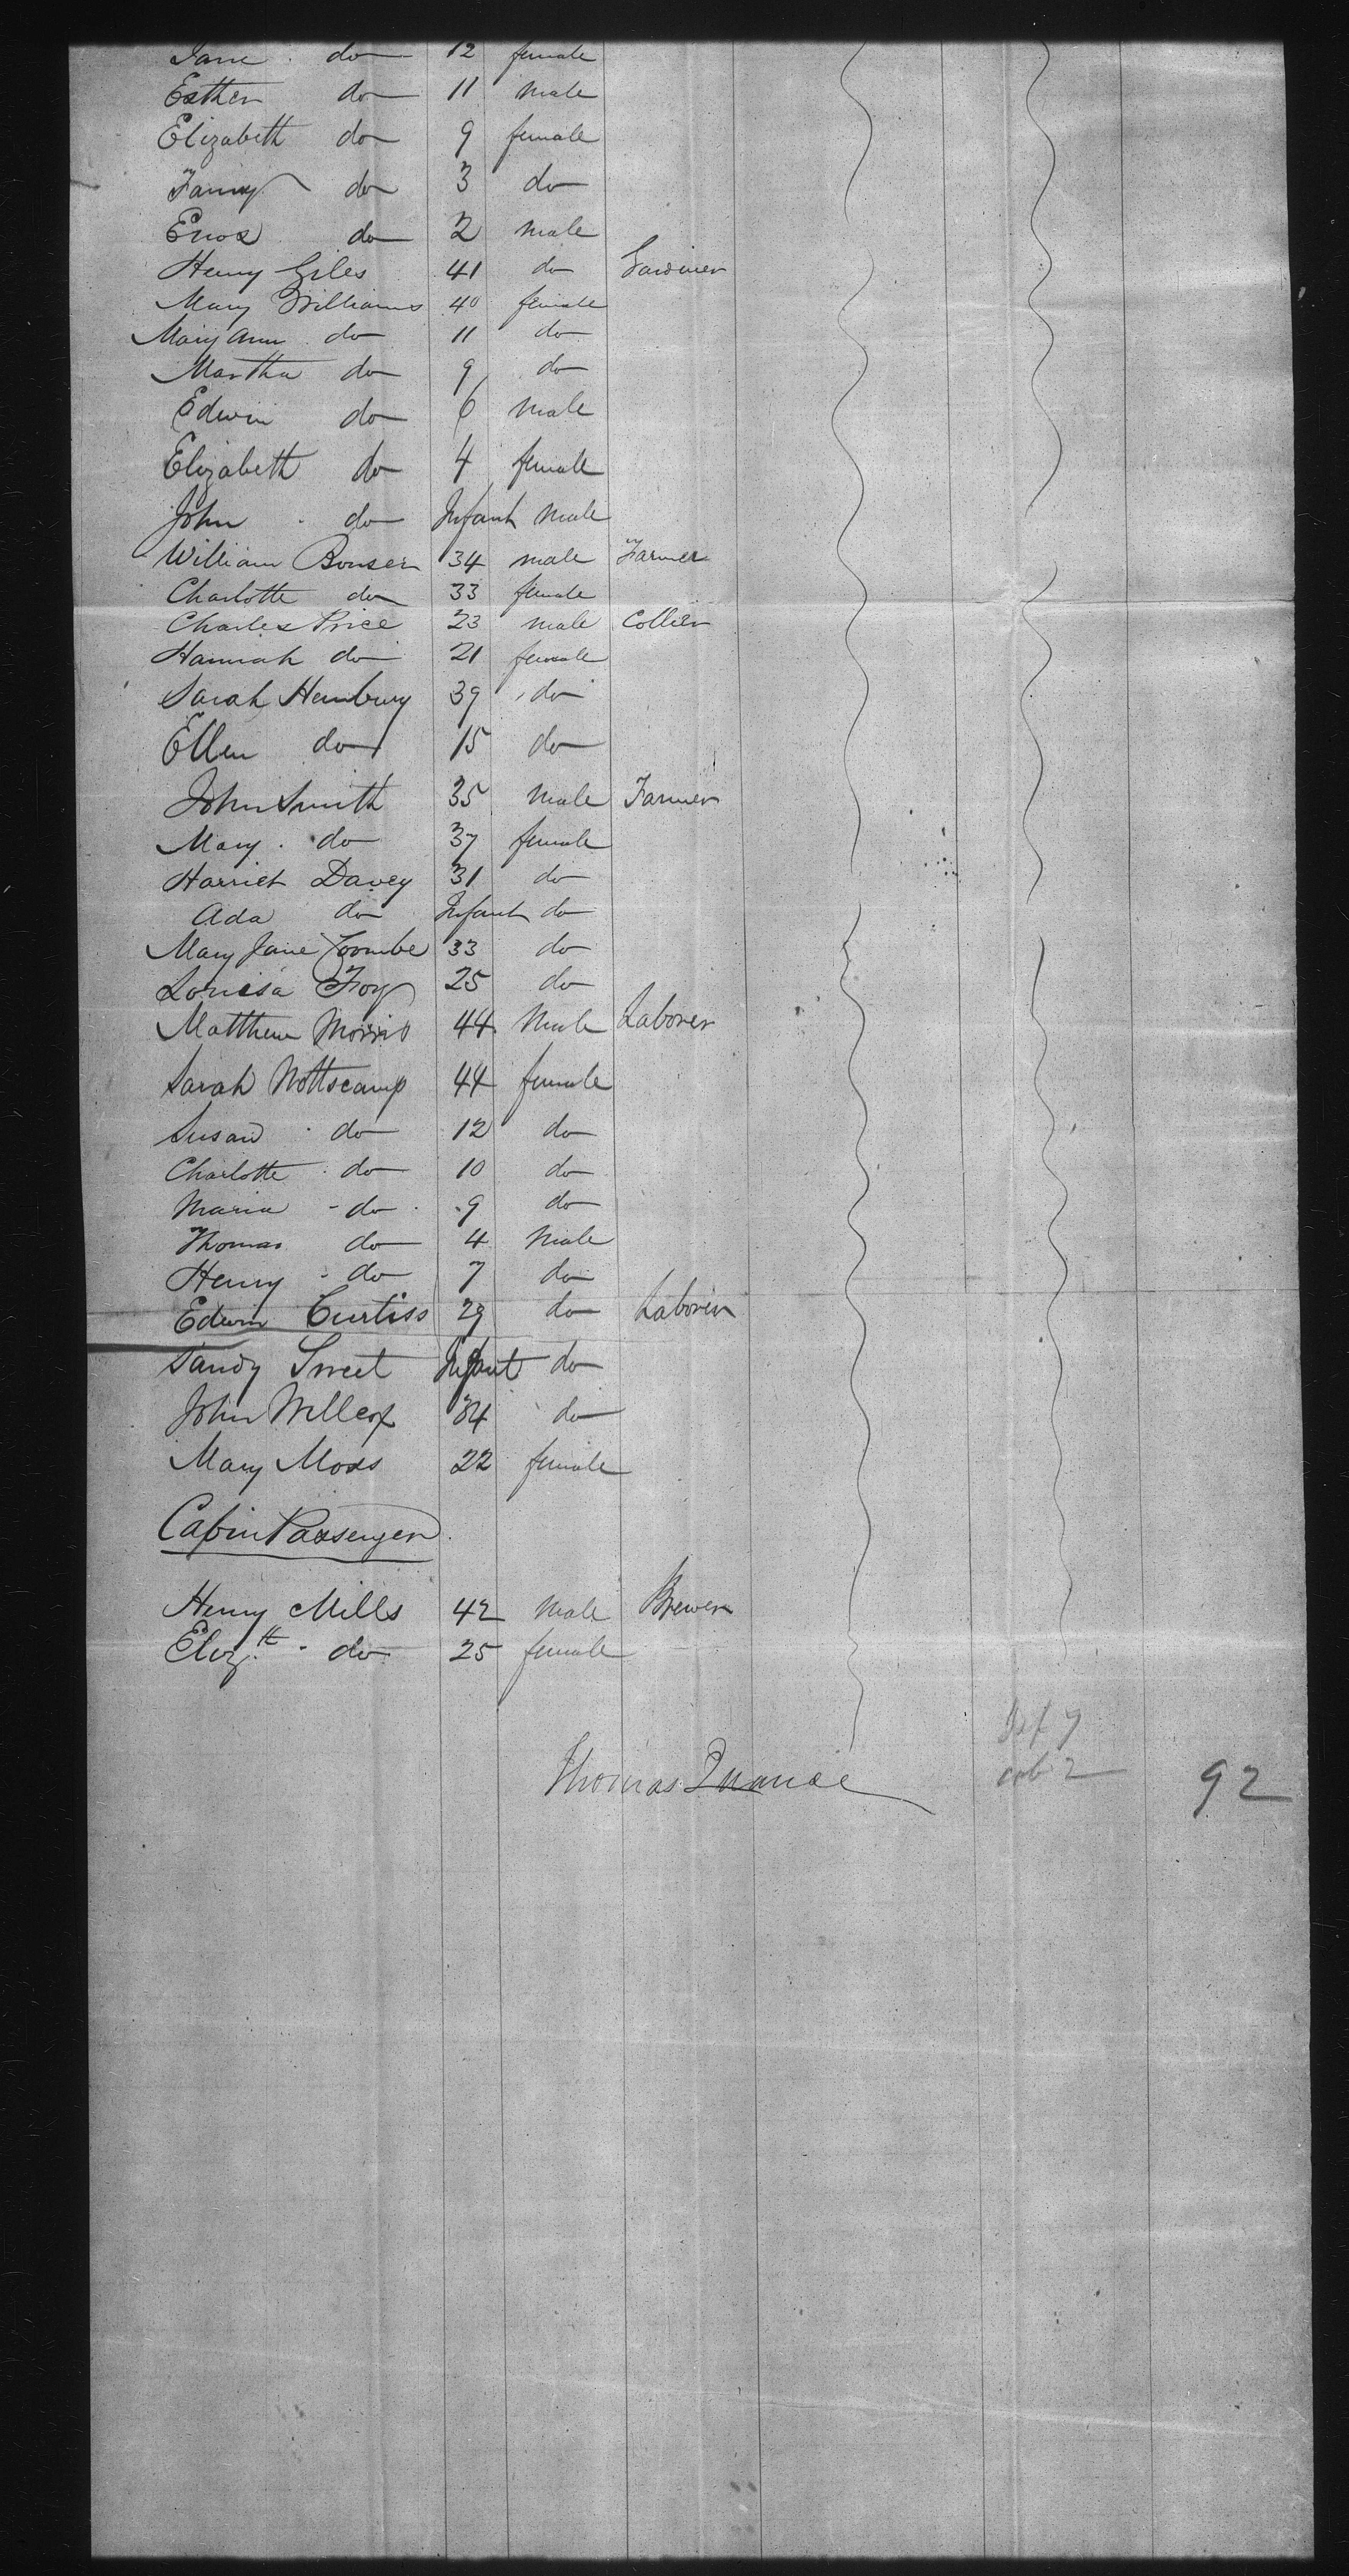 Jane do 12 female
Esther do 11 male
Elizabeth do 9 female
Fanny do 3 do
Enos do 2 male
Henry Giles 41 do Gardiner
Mary Williams 40 female
Mary Ann do 11 do
Martha do 9 do
Edwin do 6 male
Elizabeth do 4 female
John do Infant male
William Bonser 34 male Farmer
Charlotte do 33 female
Charles Price 23 male Collier
Hannah do 21 female
Sarah Hembury 39 do
Ellen do 15 do
John Smith 35 male Farmer
Mary do 37 female
Harriet Davey 31 do
Ada do Infant do
Mary Jane Coombe 33 do
Louisa Foy 25 do
Matthew Morris 44 Male Laborer
Sarah Nottscamp 44 female
Susan do 12 do
Charlotte do 10 do
Maria do 9 do
Thomas do 4 Male
Henry do 7 do
Edwin Curtiss 29 do Laborer
Sandy Sweet Infant do
John Willcox 34 do
Mary Moss 22 female
Cabin Passenger
Henry Mills 42 Male Brewer
Eliz.th do 25 female
Thomas Quance
92